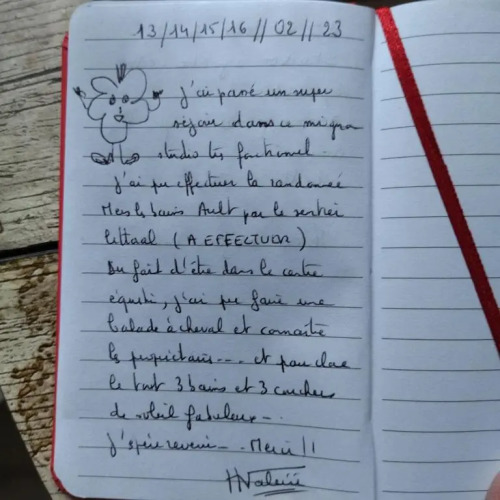 13/14/15/16 // 02 // 23
j'ai passé un super
séjour dans ce mignon
studio très fonctionnel.
J'ai pu effectuer la randonnée
Mers les bains Ault par le sentier
littoral (A EFFECTUER)
Du fait d'être dans le centre
équestre, j'ai pu faire une
balade à cheval et connaître
les propriétaires.... et pour clore
le tout 3 bains et 3 couchers
de soleil fabuleux...
J'espère revenir... Merci !!
Valérie